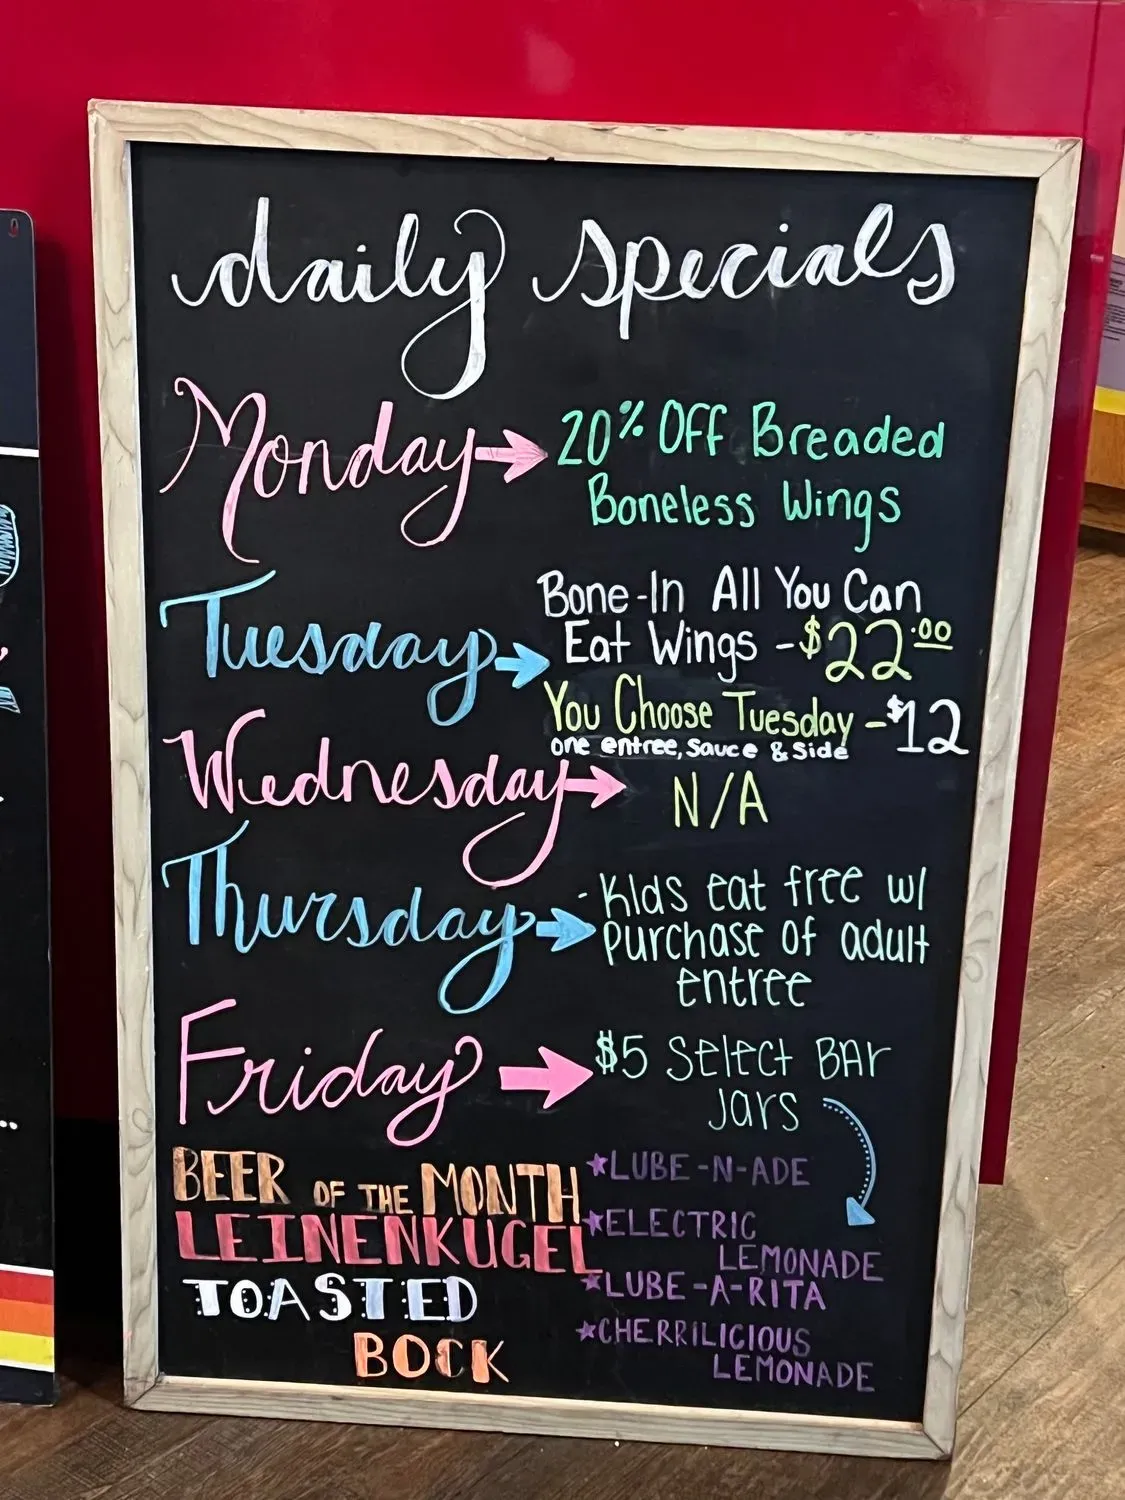 daily specials
Monday → 20% OFF Breaded
Boneless Wings
Tuesday → Bone-In All You Can
Eat Wings - $22.00
You Choose Tuesday - $12
one entree, sauce & side
Wednesday → N/A
Thursday → - Kids eat free w/
purchase of adult
entree
Friday → $5 Select BAr
Jars
★LUBE-N-ADE
★ELECTRIC
LEMONADE
★LUBE-A-RITA
★CHERRILICIOUS
LEMONADE
BEER OF THE MONTH
LEINENKUGEL
TOASTED
BOCK